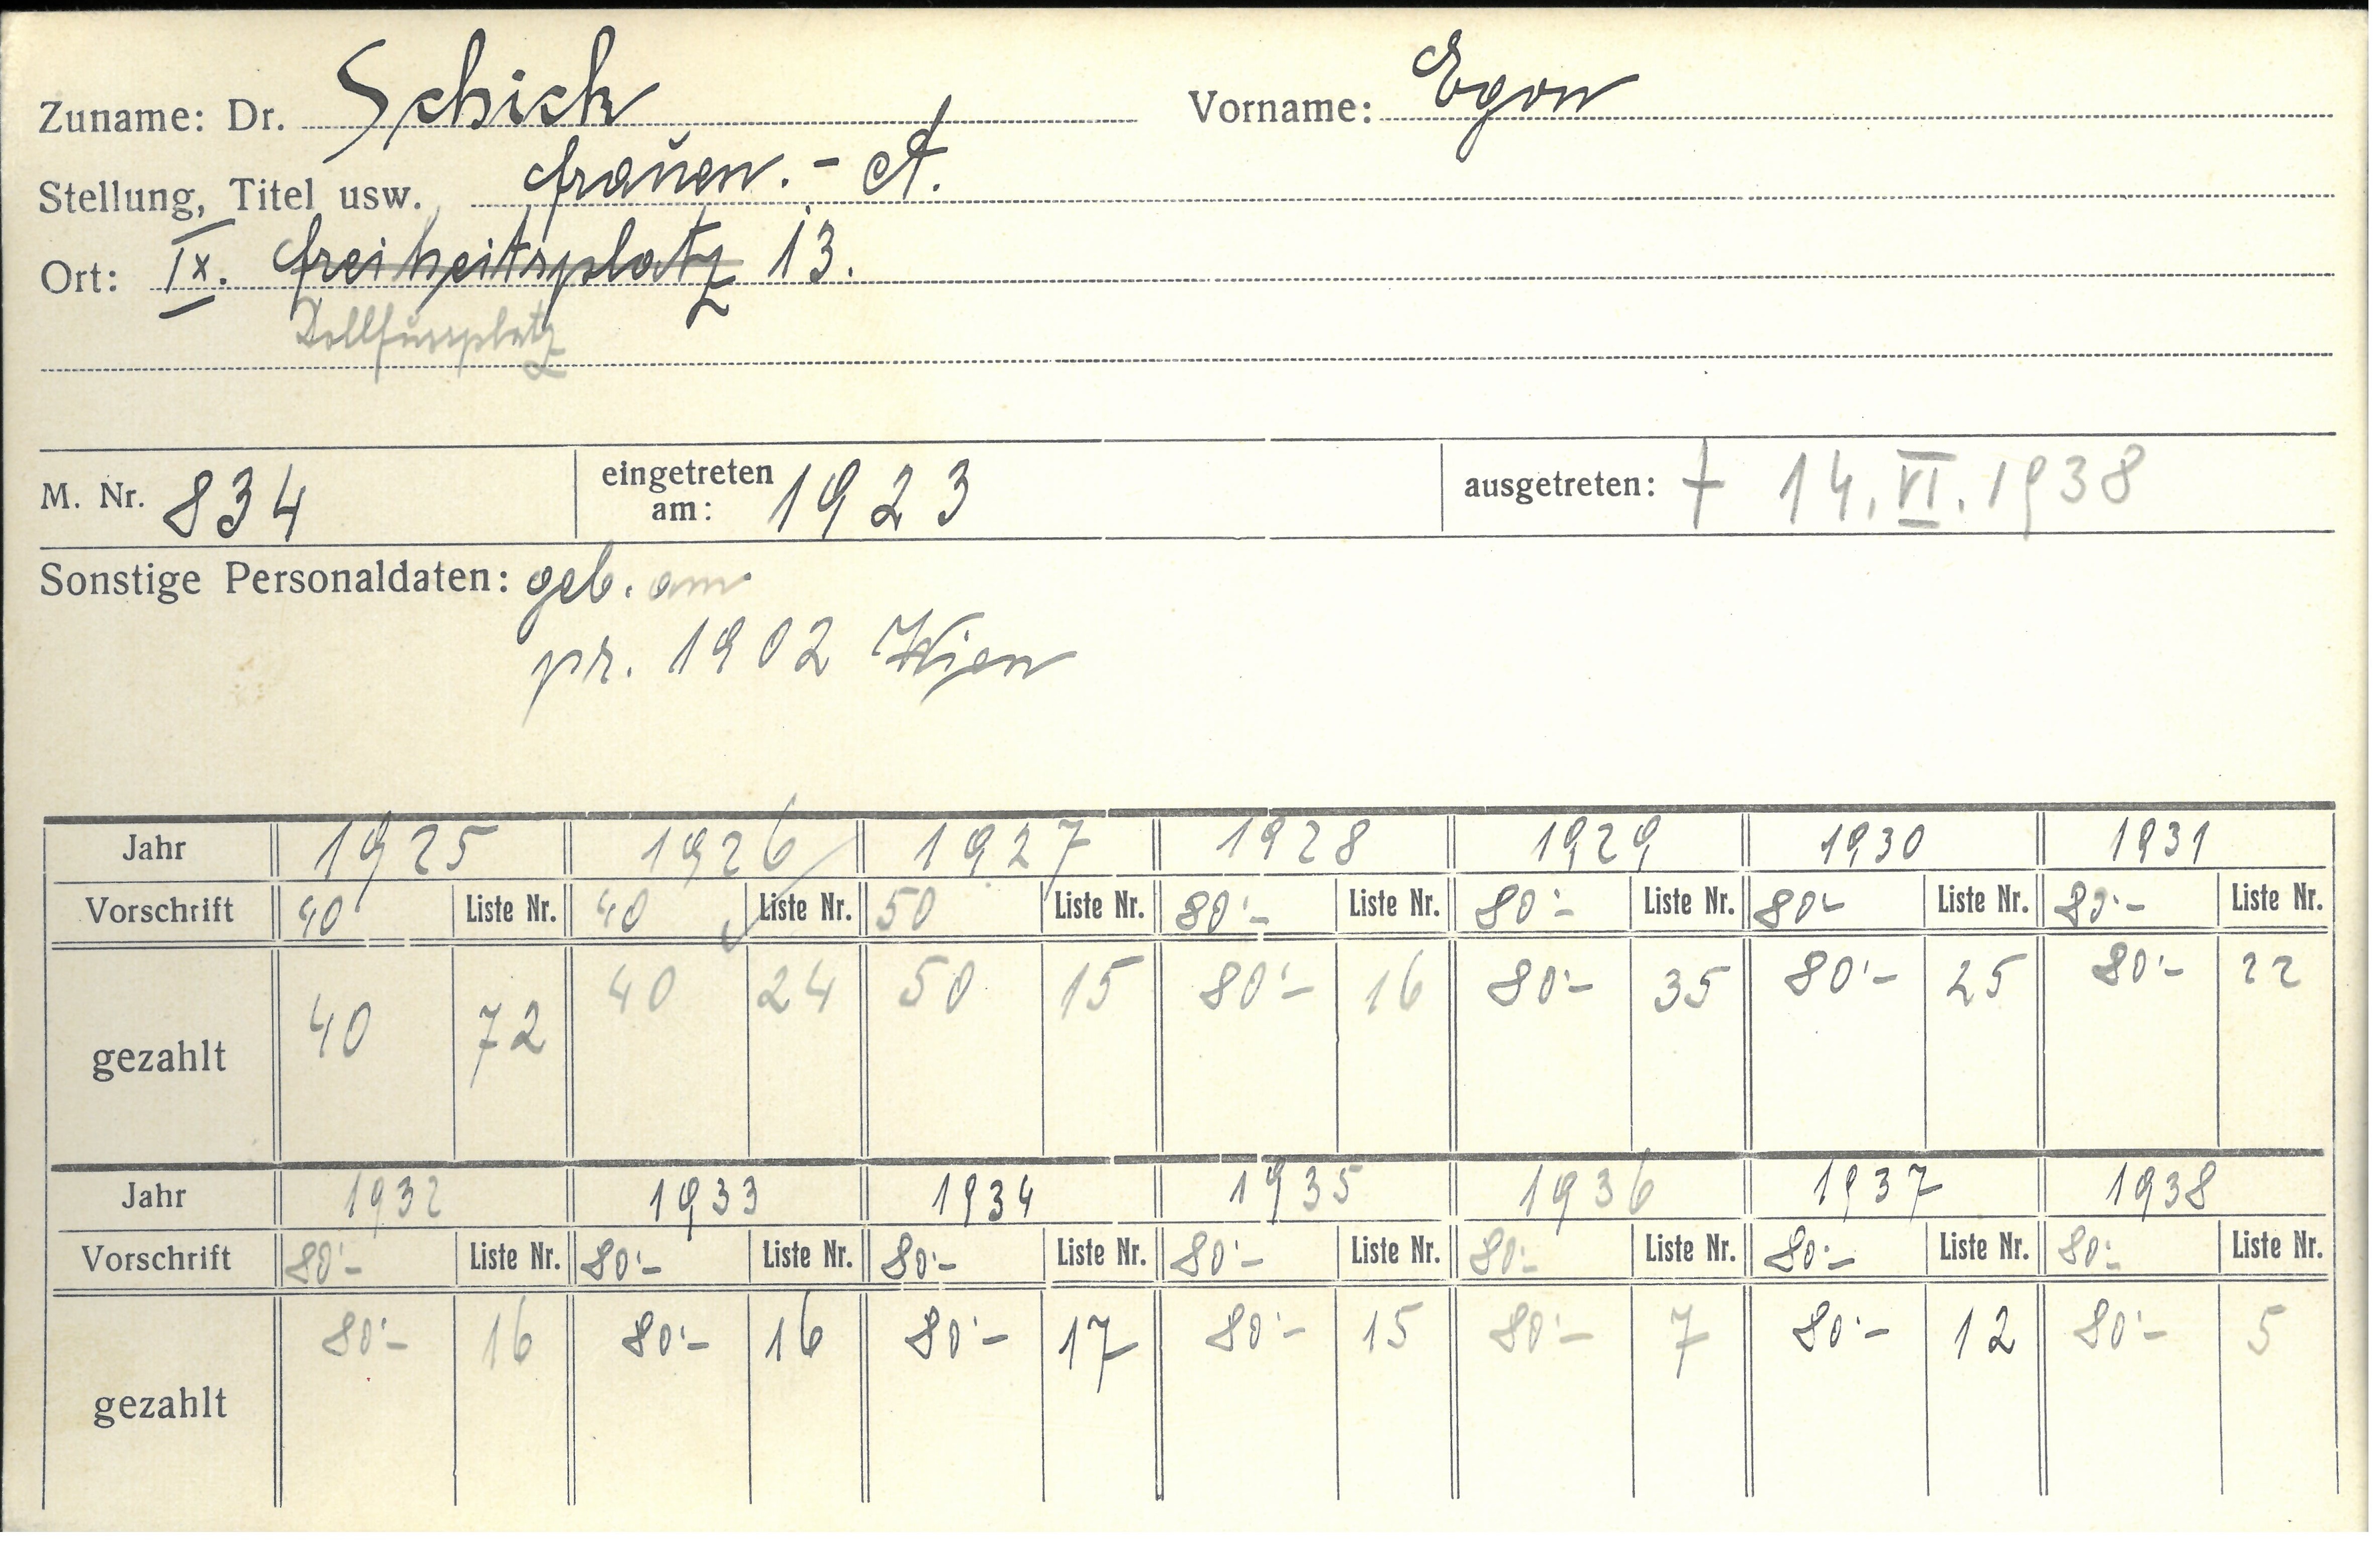 Zuname: Dr. Schick Vorname: Egon
Stellung, Titel usw. Frauen.-A.
Ort: IX. Freiheitsplatz 13.
Dollfussplatz
M. Nr. 834 eingetreten am: 1923 ausgetreten: † 14. VI. 1938
Sonstige Personaldaten: geb. am
pr. 1902 Wien
Jahr 1925 1926 1927 1928 1929 1930 1931
Vorschrift 40 Liste Nr. 40 Liste Nr. 50 Liste Nr. 80'- Liste Nr. 80'- Liste Nr. 80'- Liste Nr. 80'- Liste Nr.
gezahlt 40 72 40 24 50 15 80'- 16 80'- 35 80'- 25 80'- 22
Jahr 1932 1933 1934 1935 1936 1937 1938
Vorschrift 80'- Liste Nr. 80'- Liste Nr. 80'- Liste Nr. 80'- Liste Nr. 80'- Liste Nr. 80'- Liste Nr. 80'- Liste Nr.
gezahlt 80'- 16 80'- 16 80'- 17 80'- 15 80'- 7 80'- 12 80'- 5